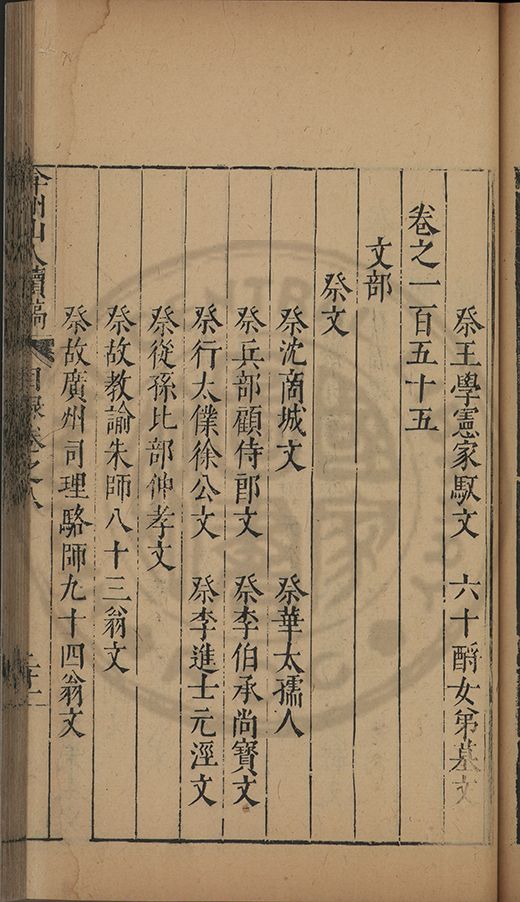 祭王學憲家馭文　六十酹女弟墓文
卷之一百五十五
文部
祭文
祭沈商城文　祭華太孺人
祭兵部顧侍郎文　祭李伯承尚寶文
祭行太僕徐公文　祭李進士元淫文
祭從孫比部仲孝文
祭故教諭朱師八十三翁文
祭故廣州司理駱師九十四翁文
弇州山人續稿　目錄卷之八